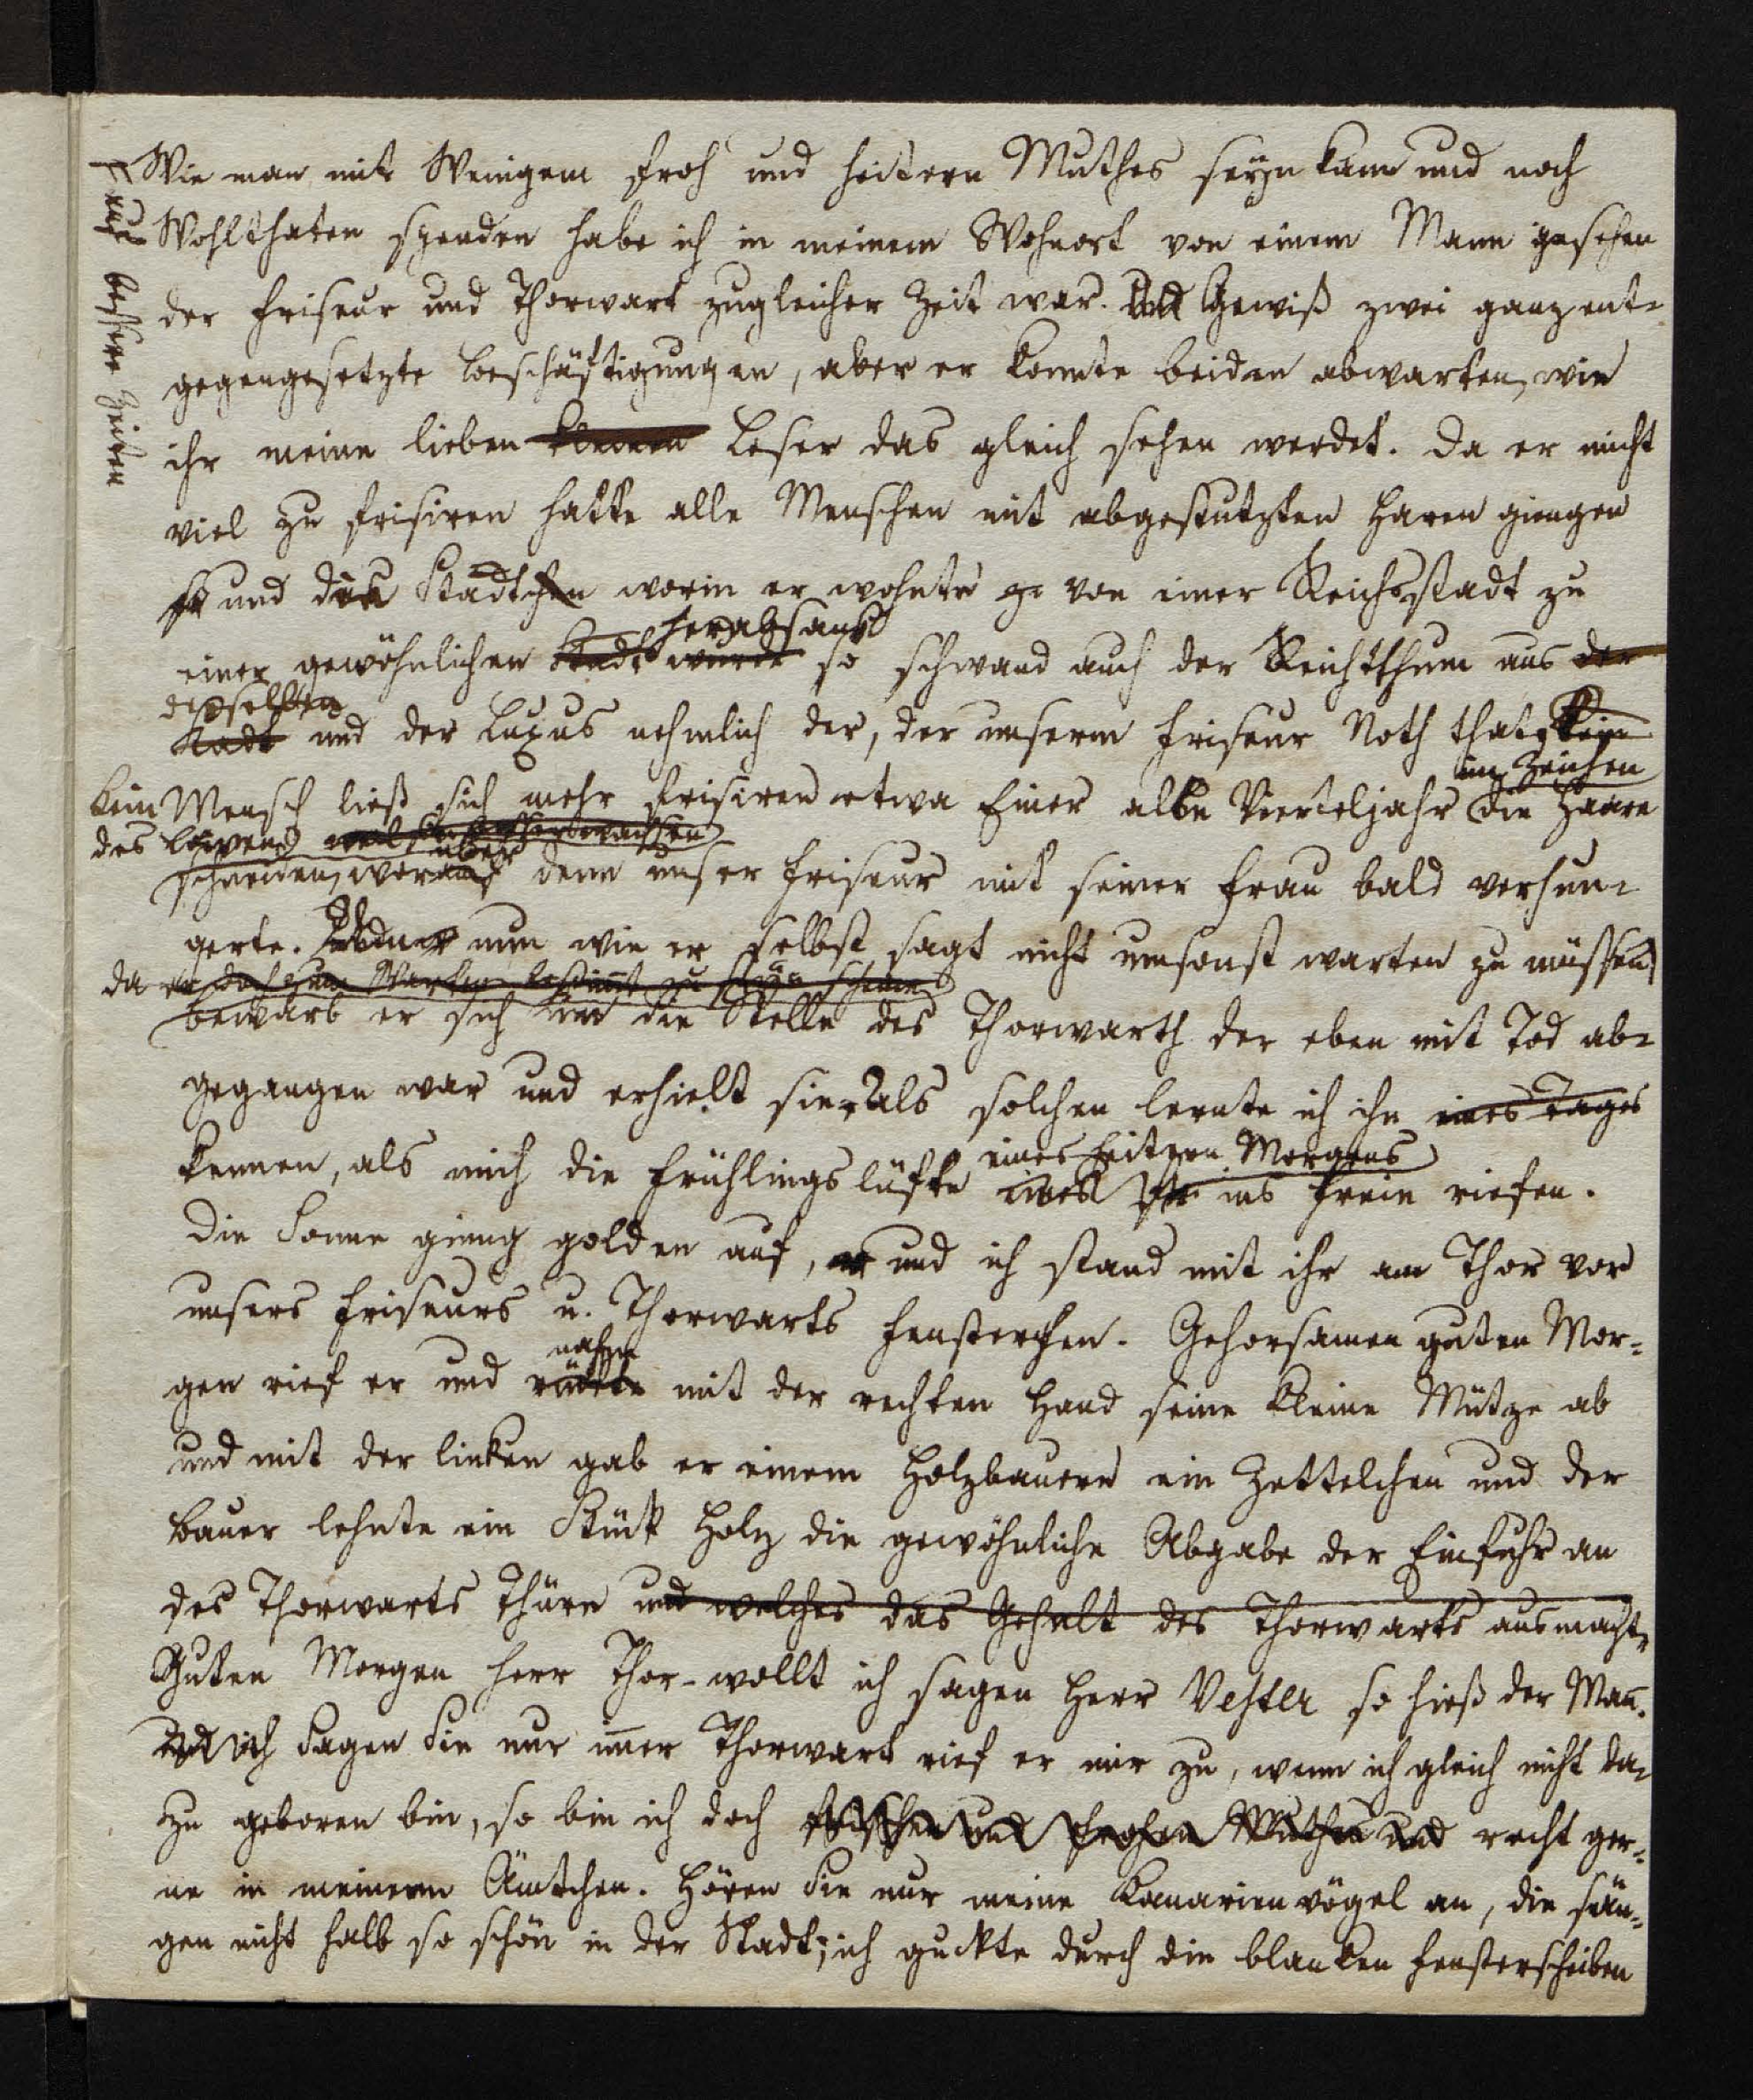 Wie man mit Wenigem froh und heitern Muthes seyn kann und noch
Wohlthaten spenden habe ich in meinem Wohnort von einem Mann gesehen
der Friseur und Thorwart zugleicher Zeit war. Und Gewiß zwei ganz ent-
gegengesetzte Beschäftigungen, aber er konnte beiden abwarten, wie
ihr meine lieben kleinen Leser das gleich sehen werdet. Da er nicht
viel zu frisiren hatte alle Menschen mit abgestutzten Haren giengen
und das Städtchen worin er wohnte ge von einer Reichsstadt zu
herabsank
einer gewöhnlichen Stadt wurde so schwand auch der Reichthum aus der
derselben
Stadt und der Luxus nehmlich der, der unserm Friseur Noth that, kein
im Zeichen
kein Mensch ließ sich mehr frisiren etwa Einer alle Vierteljahr die Haare
des Löwens weil sie besser wachsen
über
schneiden, worauf denn unser Friseur mit seiner Frau bald verhun-
gerte. Um nun wie er selbst sagt nicht umsonst warten zu müssen,
da er doch zum Warten bestimmt zu seyn scheine
bewarb er sich um die Stelle des Thorwarth der eben mit Tod ab-
gegangen war und erhielt sie. Als solchen lernte ich ihn eines Tages
eines heitern Morgens
kennen, als mich die Frühlingslüfte eines Fr ins Freie riefen.
Die Sonne gieng golden auf, und ich stand mit ihr am Thor vor
unsers Friseurs u. Thorwarts Fensterchen. Gehorsamen guten Mor-
nahm
gen rief er und rückte mit der rechten Hand seine kleine Mütze ab
und mit der linken gab er einem Holzbauern ein Zettelchen und der
Bauer lehnte ein Stück Holz die gewöhnliche Abgabe der Einfuhr an
des Thorwarts Thüre und welches das Gehalt des Thorwarts ausmachte
Guten Morgen Herr Thor- wollt ich sagen Herr Vester so hieß der Man̄.
ich Sagen Sie nur im̄er Thorwart rief er mir zu, wenn ich gleich nicht da-
zu geboren bin, so bin ich doch frischen und frohen Muthes und recht ger-
ne in meinem Ämtchen. Hören Sie nur meine Kanarienvögel an, die sän-
gen nicht halb so schön in der Stadt; ich guckte durch die blanken Fensterscheiben
Aus bessere Zeiten